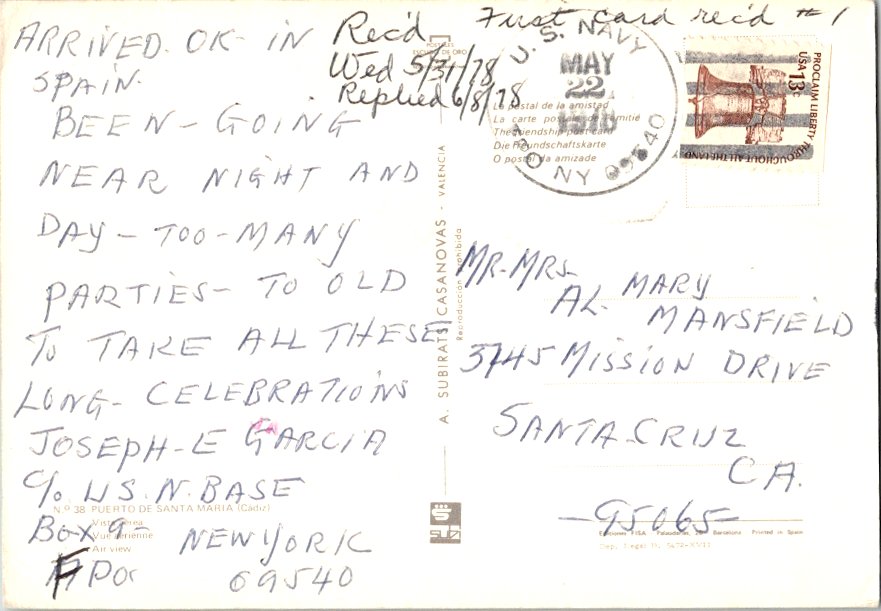 First card rec'd #1
Rec'd
Wed 5/31/78
Replied 6/8/78
ARRIVED OK IN
SPAIN.
BEEN - GOING
NEAR NIGHT AND
DAY - TOO - MANY
PARTIES - TO OLD
TO TAKE ALL THESE
LONG - CELEBRATIONS
JOSEPH - E GARCIA
C/o. US. N. BASE
BOX 9 -
NEW YORK
FPO
09540
Nº 38 PUERTO DE SANTA MARIA (Cádiz)
Vista aérea
Vue aérienne
Air view
POSTALES
ESCUDO DE ORO
A. SUBIRATS CASANOVAS - VALENCIA
Reproducción prohibida
La postal de la amistad
La carte postale de l'amitié
The friendship post card
Die Freundschaftskarte
O postal da amizade
U.S. NAVY
MAY
22
1978
NY 09540
PROCLAIM LIBERTY THROUGHOUT ALL THE LAND
USA 13c
MR. MRS
AL MARY
MANSFIELD
3745 MISSION DRIVE
SANTA CRUZ
CA.
- 95065 -
Ediciones FISA Barcelona Printed in Spain